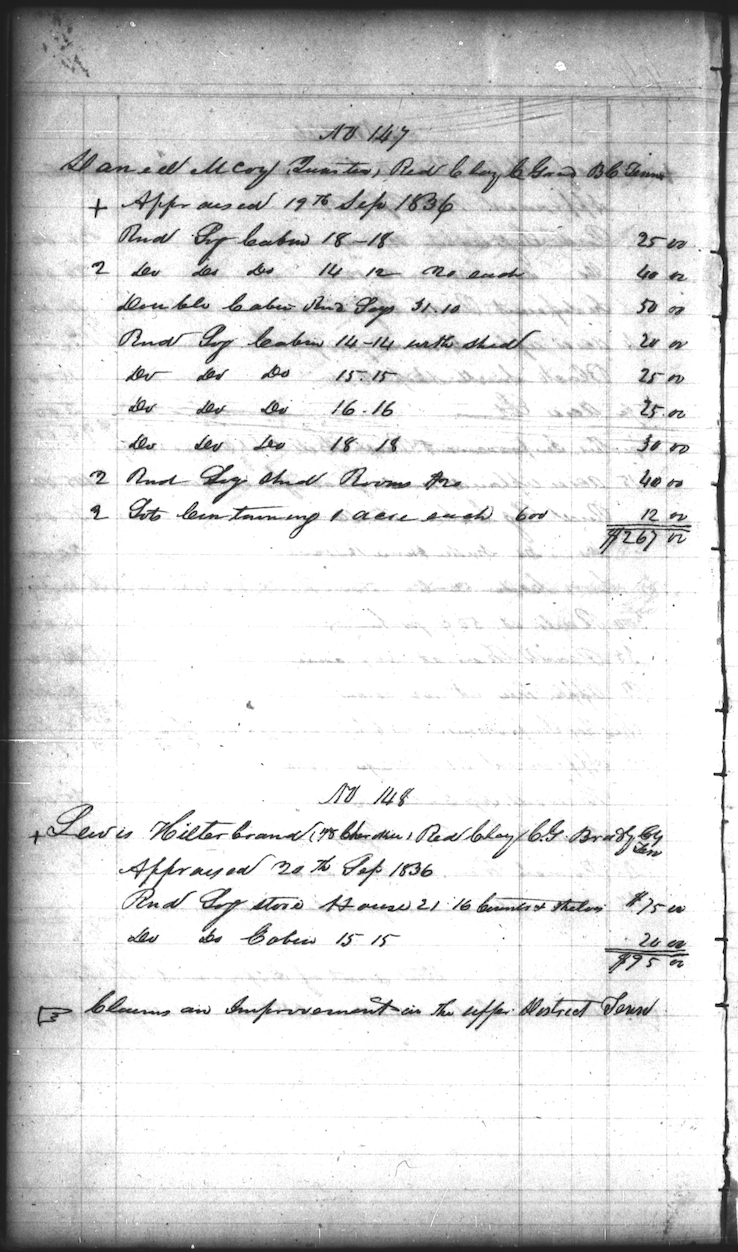 No 147
Daniel McCoy (Quarter) Red Clay C Ground B C Tenn
+ Appraised 19th Sep 1836
Rnd Log Cabin 18-18 25 00
2 Do Do Do 14 12 20 each 40 00
Double Cabin Rnd Logs 31.10 50 00
Rnd Log Cabin 14-14 with shed 20 00
Do Do Do 15.15 25 00
Do Do Do 16.16 25.00
Do Do Do 18 18 30 00
2 Rnd Log Shed Rooms 40 00
2 Lots Containing 1 acre each 600 12 00
$267 00
No 148
+ Lewis Hilterbrand Red Clay C.G. Bradly Cy Ten
Appraised 20th Sep 1836
Rnd Log store House 21 16 Counter & Shelves $75 00
Do Do Cabin 15 15 20 00
$95 00
Claims an Improvement in the upper District Tenn